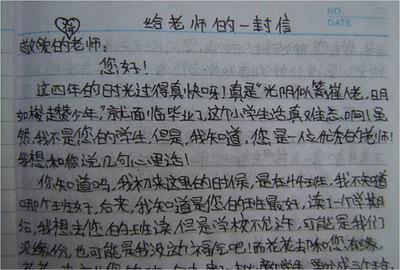 NO.
DATE
给老师的一封信
敬爱的老师:
您好!
这四年的时光过得真快呀!真是“光阴似箭催人老,日月
如梭趱少年。”就面临毕业了,这个小学生活真难忘啊!虽
然,我不是您的学生,但是,我知道,您是一位优秀的老师!
我想和你说几句心里话!
你知道吗,我初来这里的时候,是在4年班,我不知道
哪个班好,后来,我知道是您的班最好,读了一个学期
后,我想去您的班读,但是学校不允许,可能是我们
没缘份,也可能是我没这个福气吧!而花花却和您有缘,